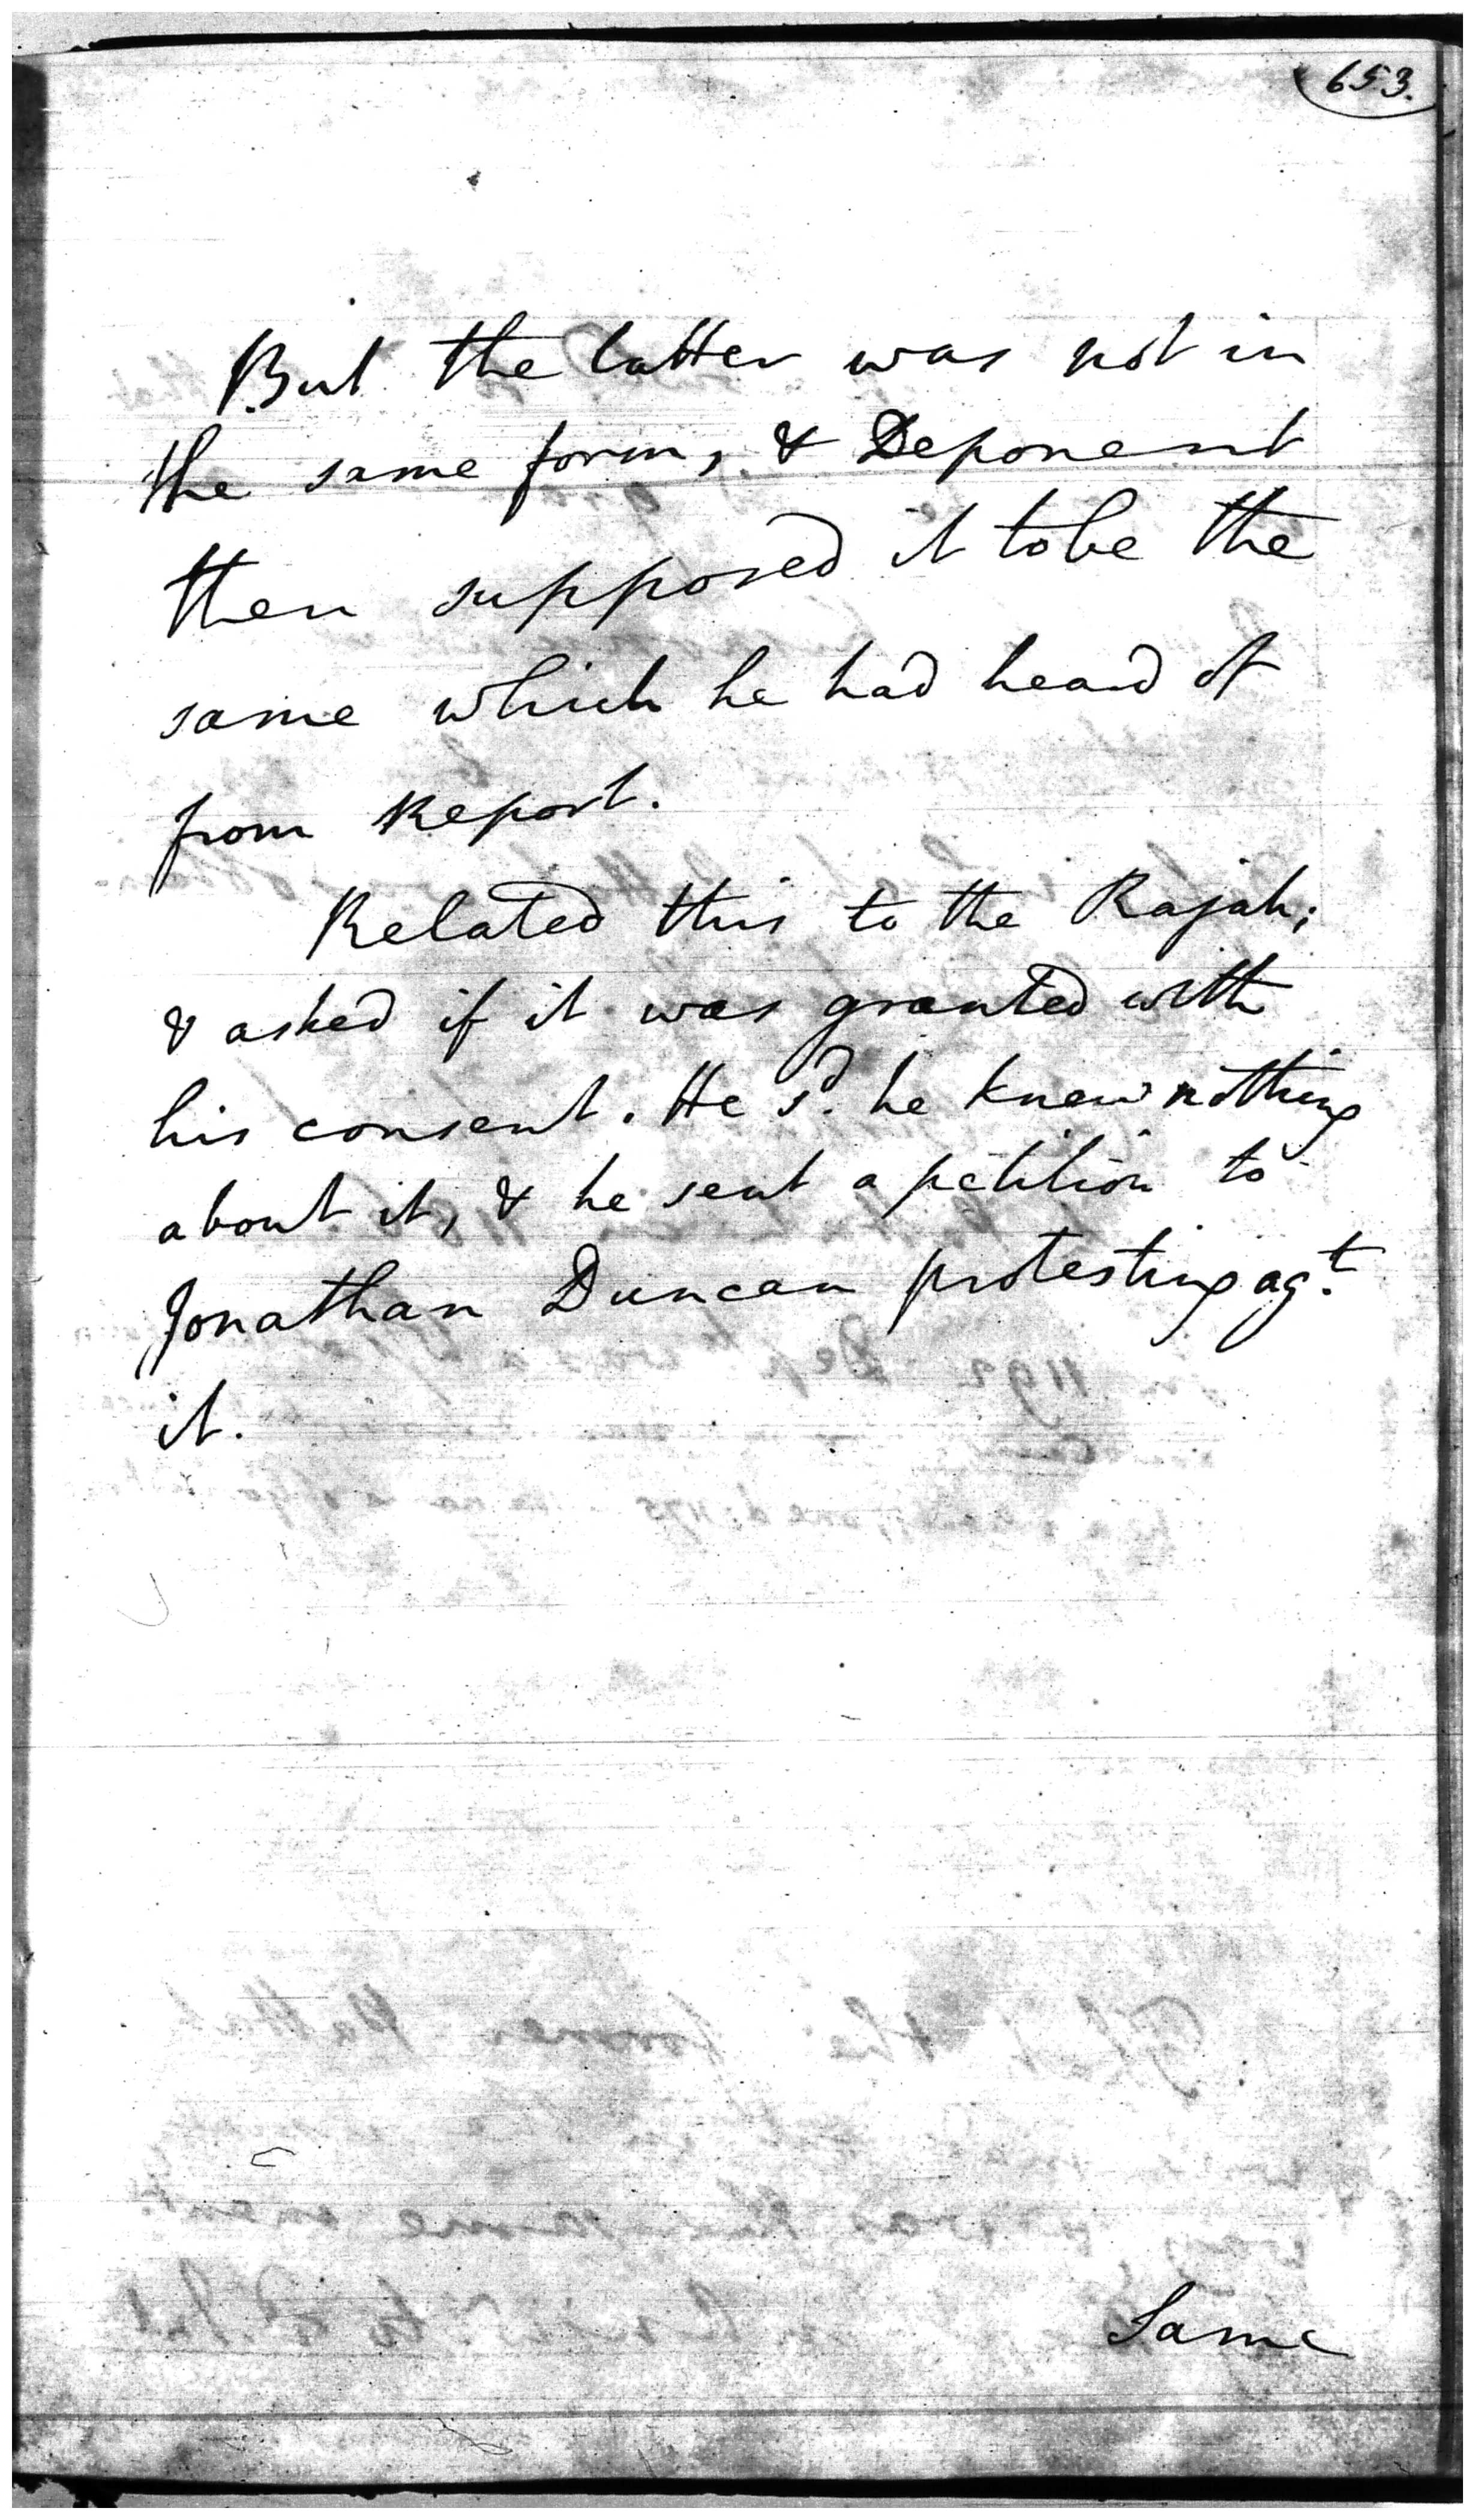 653.
But the latter was not in
the same form, & Deponent
then supposed it to be the
same which he had heard of
from Report.
Related this to the Rajah;
& asked if it was granted with
his consent. He sd. he knew nothing
about it, & he sent a petition to
Jonathan Duncan protesting agt.
it.
Same